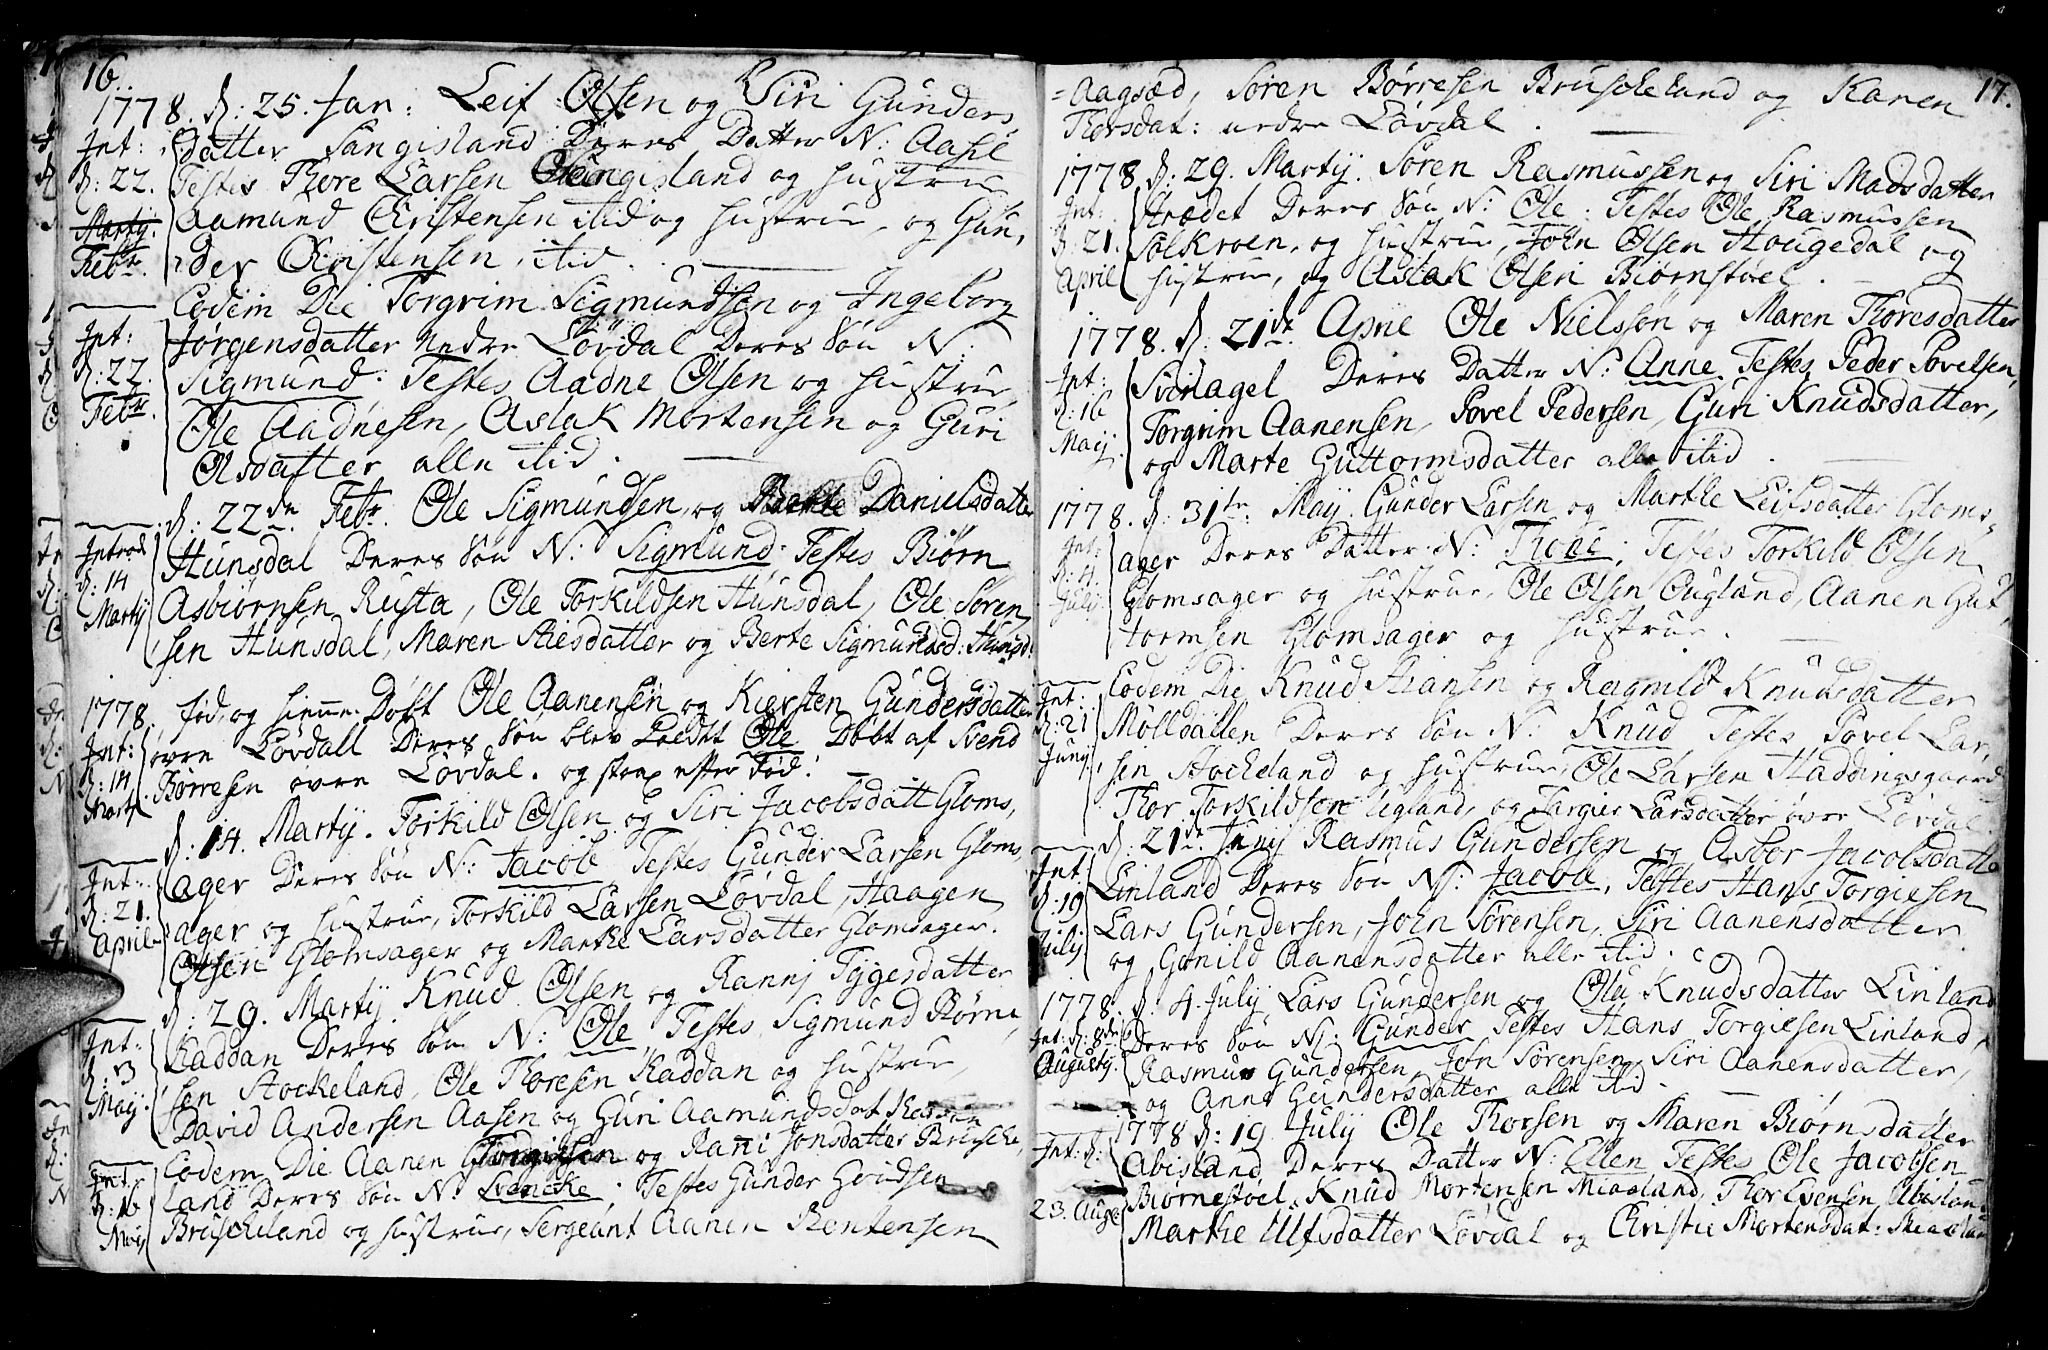 16.
1778. d: 25. Jan: Leif Olsen og Siri Gunders
Int: datter Sangisland Deres Datter N: Aasil
d: 22. Testes Thore Larsen Sangisland og hustrue
Martij. Aamund Christensen itid og hustrue, og Gun,
Febr. der Christensen itid.
Eodem Die Torgrim Sigmundsen og Ingeborg
Int: Jørgensdatter Nedre Løvdal Deres Søn N:
d: 22. Sigmund. Testes Aadne Olsen og hustrue
Febr. Ole Aadnesen, Aslak Mortensen og Guri
Olsdatter alle itid.
d: 22de Febr. Ole Sigmundsen og Berte Danielsdatter
Introd Hunsdal Deres Søn N: Sigmund. Testes Biørn
d: 14 Asbiørnsen Rusta, Ole Torkildsen Hunsdal, Ole Søren
Martij sen Hunsdal, Maren Aiesdatter og Berte Sigmundsd: Hunsd:
1778. fød, og hiemme Døbt Ole Aanensen og Kiersten Gundersdatter
Int: øvre Løvdall Deres Søn blev kaldt Ole Døbt af Svend
d: 14 Børresen øvre Løvdal. og strax efter Død.
Martj.
d: 14. Martij. Torkild Olsen og Siri Jacobsdatt Gloms,
Int: ager Deres Søn N: Jacob Testes Gunder Larsen Gloms
d: 21. ager og hustrue, Torkild Larsen Løvdal, Haagen
April Olsen Glomsager og Marthe Larsdatter Glomsager.
d: 29. Martij Knud Olsen og Ranni Tygesdatter
Int: Kaddan Deres Søn N: Ole, Testes Sigmund Børne,
d: 3 sen Stockeland, Ole Thoresen Kaddan og hustrue,
Maij. David Andersen Aasen og Guri Aamundsdat
Eodem Die Aanen og Rani Jonsdatter Brusche,
Int: land Deres Søn N: Svencke. Testes Gunder
d: 16 Bruscheland og hustrue, Sergeant Aanen Bentensen
Maij
17.
=Aagsæd, Søren Børresen Bruscheland og Karen
Thorsdat: nedre Løvdal.
1778 d: 29. Martij. Søren Rasmussen og Siri Madsdatter
Int: Strædet Deres Søn N: Ole. Testes Ole Rasmussen
d: 21. Solkroen, og hustrue, John Olsen Hougedal og
April hustrue, og Aslak Olsen Biørnstøel.
1778. d: 21de April Ole Nielssøn og Maren Thoresdatter
Int: Svinagel Deres Datter N: Anne Testes Peder Povelsen,
d: 16 Torgrim Aanensen, Povel Pedersen, Guri Knudsdatter,
Maij. og Marte Guttormsdatter alle itid.
1778. d: 31te Maij Gunder Larsen og Marthe Leifsdatter Gloms=
Int: ager Deres Datter N: Thone. Testes Torkild Olsen
d: 4. Glomsager og hustrue, Ole Olsen Ougland, Aanen Gut,
Julij tormsen Glomsager og hustrue.
Int: Eodem Die Knud Hansen og Ragnild Knudsdatter
d: 21 Mølldallen Deres Søn N: Knud Testes Povel Lar,
Junij sen Stockeland og hustrue, Ole Larsen Haddingsgaard
Thor Torkildsen Ugland, og Targier Larsdatter øvre Løvdal.
d: 21de Junij Rasmus Gundersen og Asbor Jacobsdatter
Int: Linland Deres Søn N: Jacob. Testes Hans Torgiesen
d: 19 Lars Gundersen, John Sørensen, Siri Aanensdatter
Julij og Gunild Aanensdatter alle itid.
1778. d. 4. July Lars Gundersen og Olu Knudsdatter Linland
Int: d: 8de Deres Søn N: Gunder Testes Hans Torgiesen Linland,
Augusty. Rasmus Gundersen, John Sørensen, Siri Aanensdatter,
og Anne Gundersdatter alle itid.
1778 d: 19 July Ole Thorsen og Maren Biørnsdatter
Int: d: Abisland Deres Datter N: Ellen Testes Ole Jacobsen
23. Aug Biørnestøel, Knud Mortensen Miaaland, Thor Evensen Abisland
Marthe Ulfsdatter Løvdal og Christie Mortensdat: